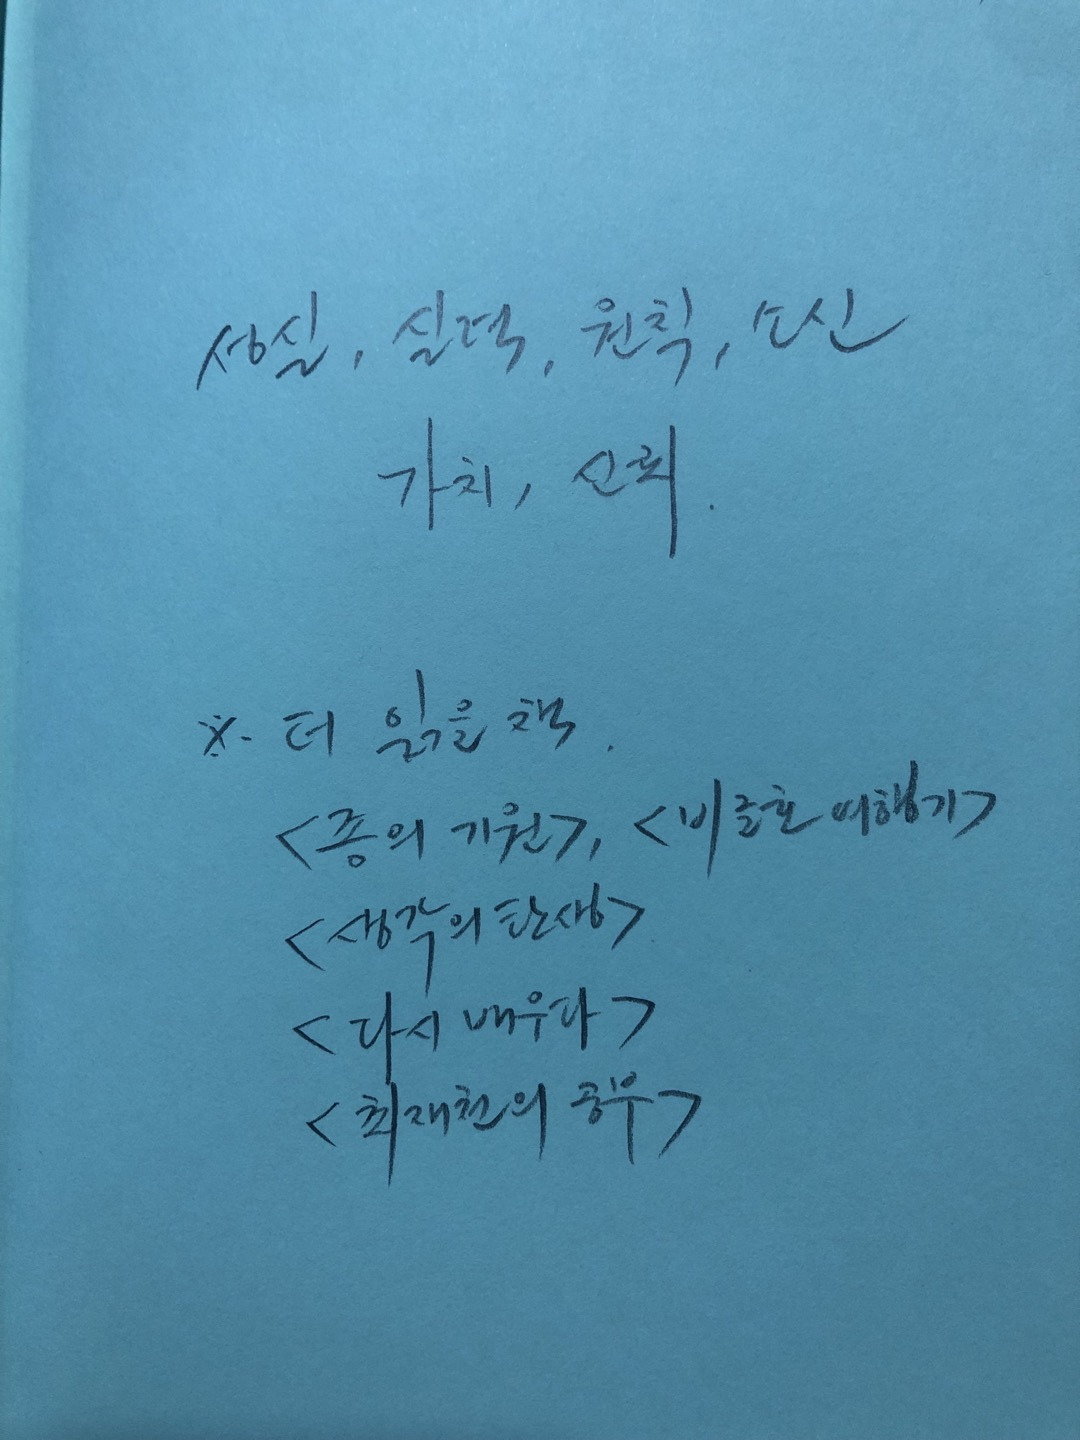 성실, 실력, 원칙, 소신
가치, 신뢰.
※. 더 읽을 책.
<종의 기원>, <비글호 여행기>
<생각의 탄생>
<다시 배우다>
<최재천의 공부>